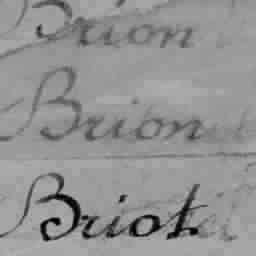 Brion
Brion
Briot